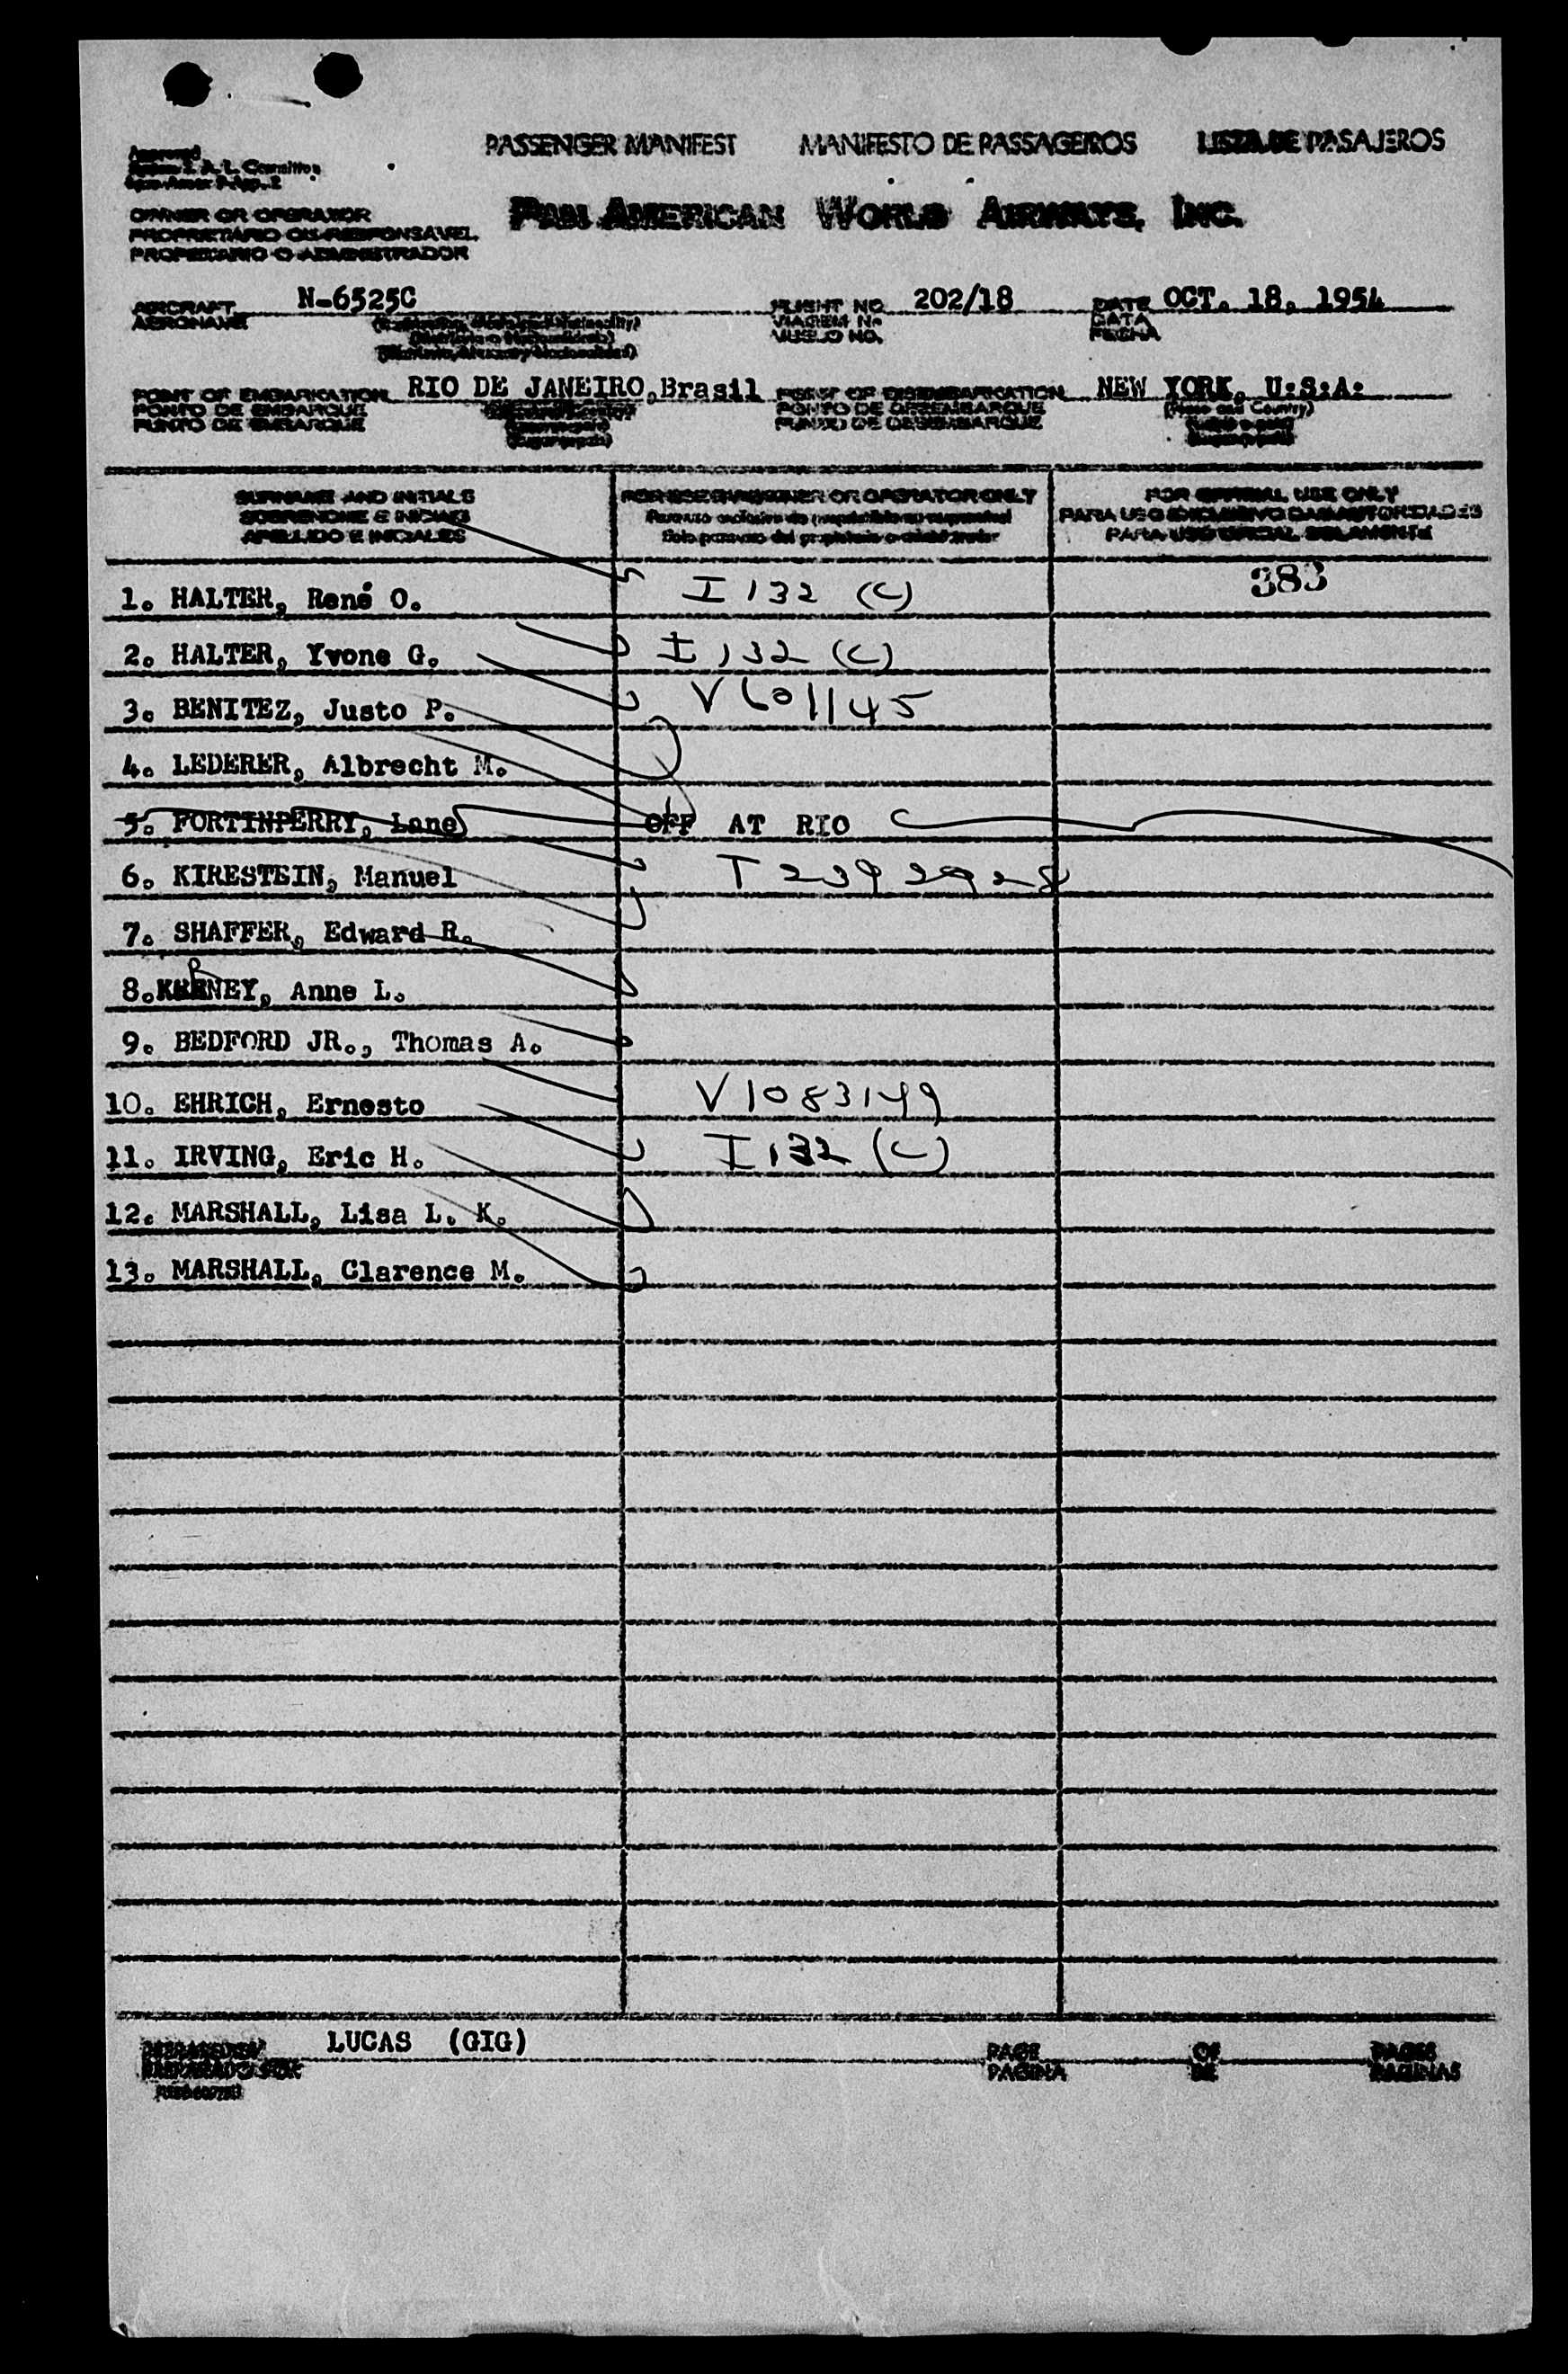 PASSENGER MANIFEST MANIFESTO DE PASSAGEIROS LISTA DE PASAJEROS
OWNER OR OPERATOR
PROPRIETÁRIO OU RESPONSAVEL
PROPIETARIO O ADMINISTRADOR
PAN AMERICAN WORLD AIRWAYS, INC.
AIRCRAFT N-6525C FLIGHT NO 202/18 DATE OCT. 18, 1954
AERONAVE VIAGEM No DATA
VUELO NO. FECHA
POINT OF EMBARKATION RIO DE JANEIRO,Brasil POINT OF DISEMBARKATION NEW YORK, U:S:A:
PONTO DE EMBARQUE PONTO DE DESEMBARQUE (Place and Country)
PUNTO DE EMBARQUE PUNTO DE DESEMBARQUE
SURNAME AND INITIALS FOR USE OR OPERATOR ONLY FOR OFFICIAL USE ONLY
SOBRENOME E INICIAIS PARA USO EXCLUSIVO DAS AUTORIDADES
APELLIDO E INICIALES PARA USO OFICIAL SOLAMENTE
1. HALTER, René O. I 132 (C) 383
2. HALTER, Yvone G. I 132 (C)
3. BENITEZ, Justo P. V 601145
4. LEDERER, Albrecht M.
5. FORTINPERRY, Lane OFF AT RIO
6. KIRESTEIN, Manuel T 2392928
7. SHAFFER, Edward R.
8. Anne L.
9. BEDFORD JR., Thomas A.
10. EHRICH, Ernesto V 1083149
11. IRVING, Eric H. I 132 (C)
12. MARSHALL, Lisa L. K.
13. MARSHALL, Clarence M.
LUCAS (GIG) PAGE OF PAGES
PAGINA DE PAGINAS